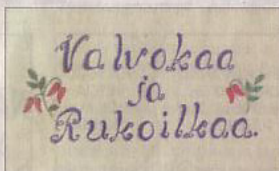 Valvokaa
ja
Rukoilkaa.